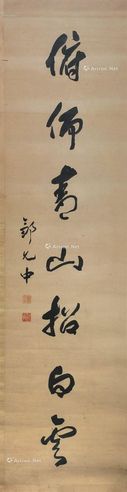 俯仰青山招白雲
鄧允中
Artron.Net
Artron.Net
Artron.Net